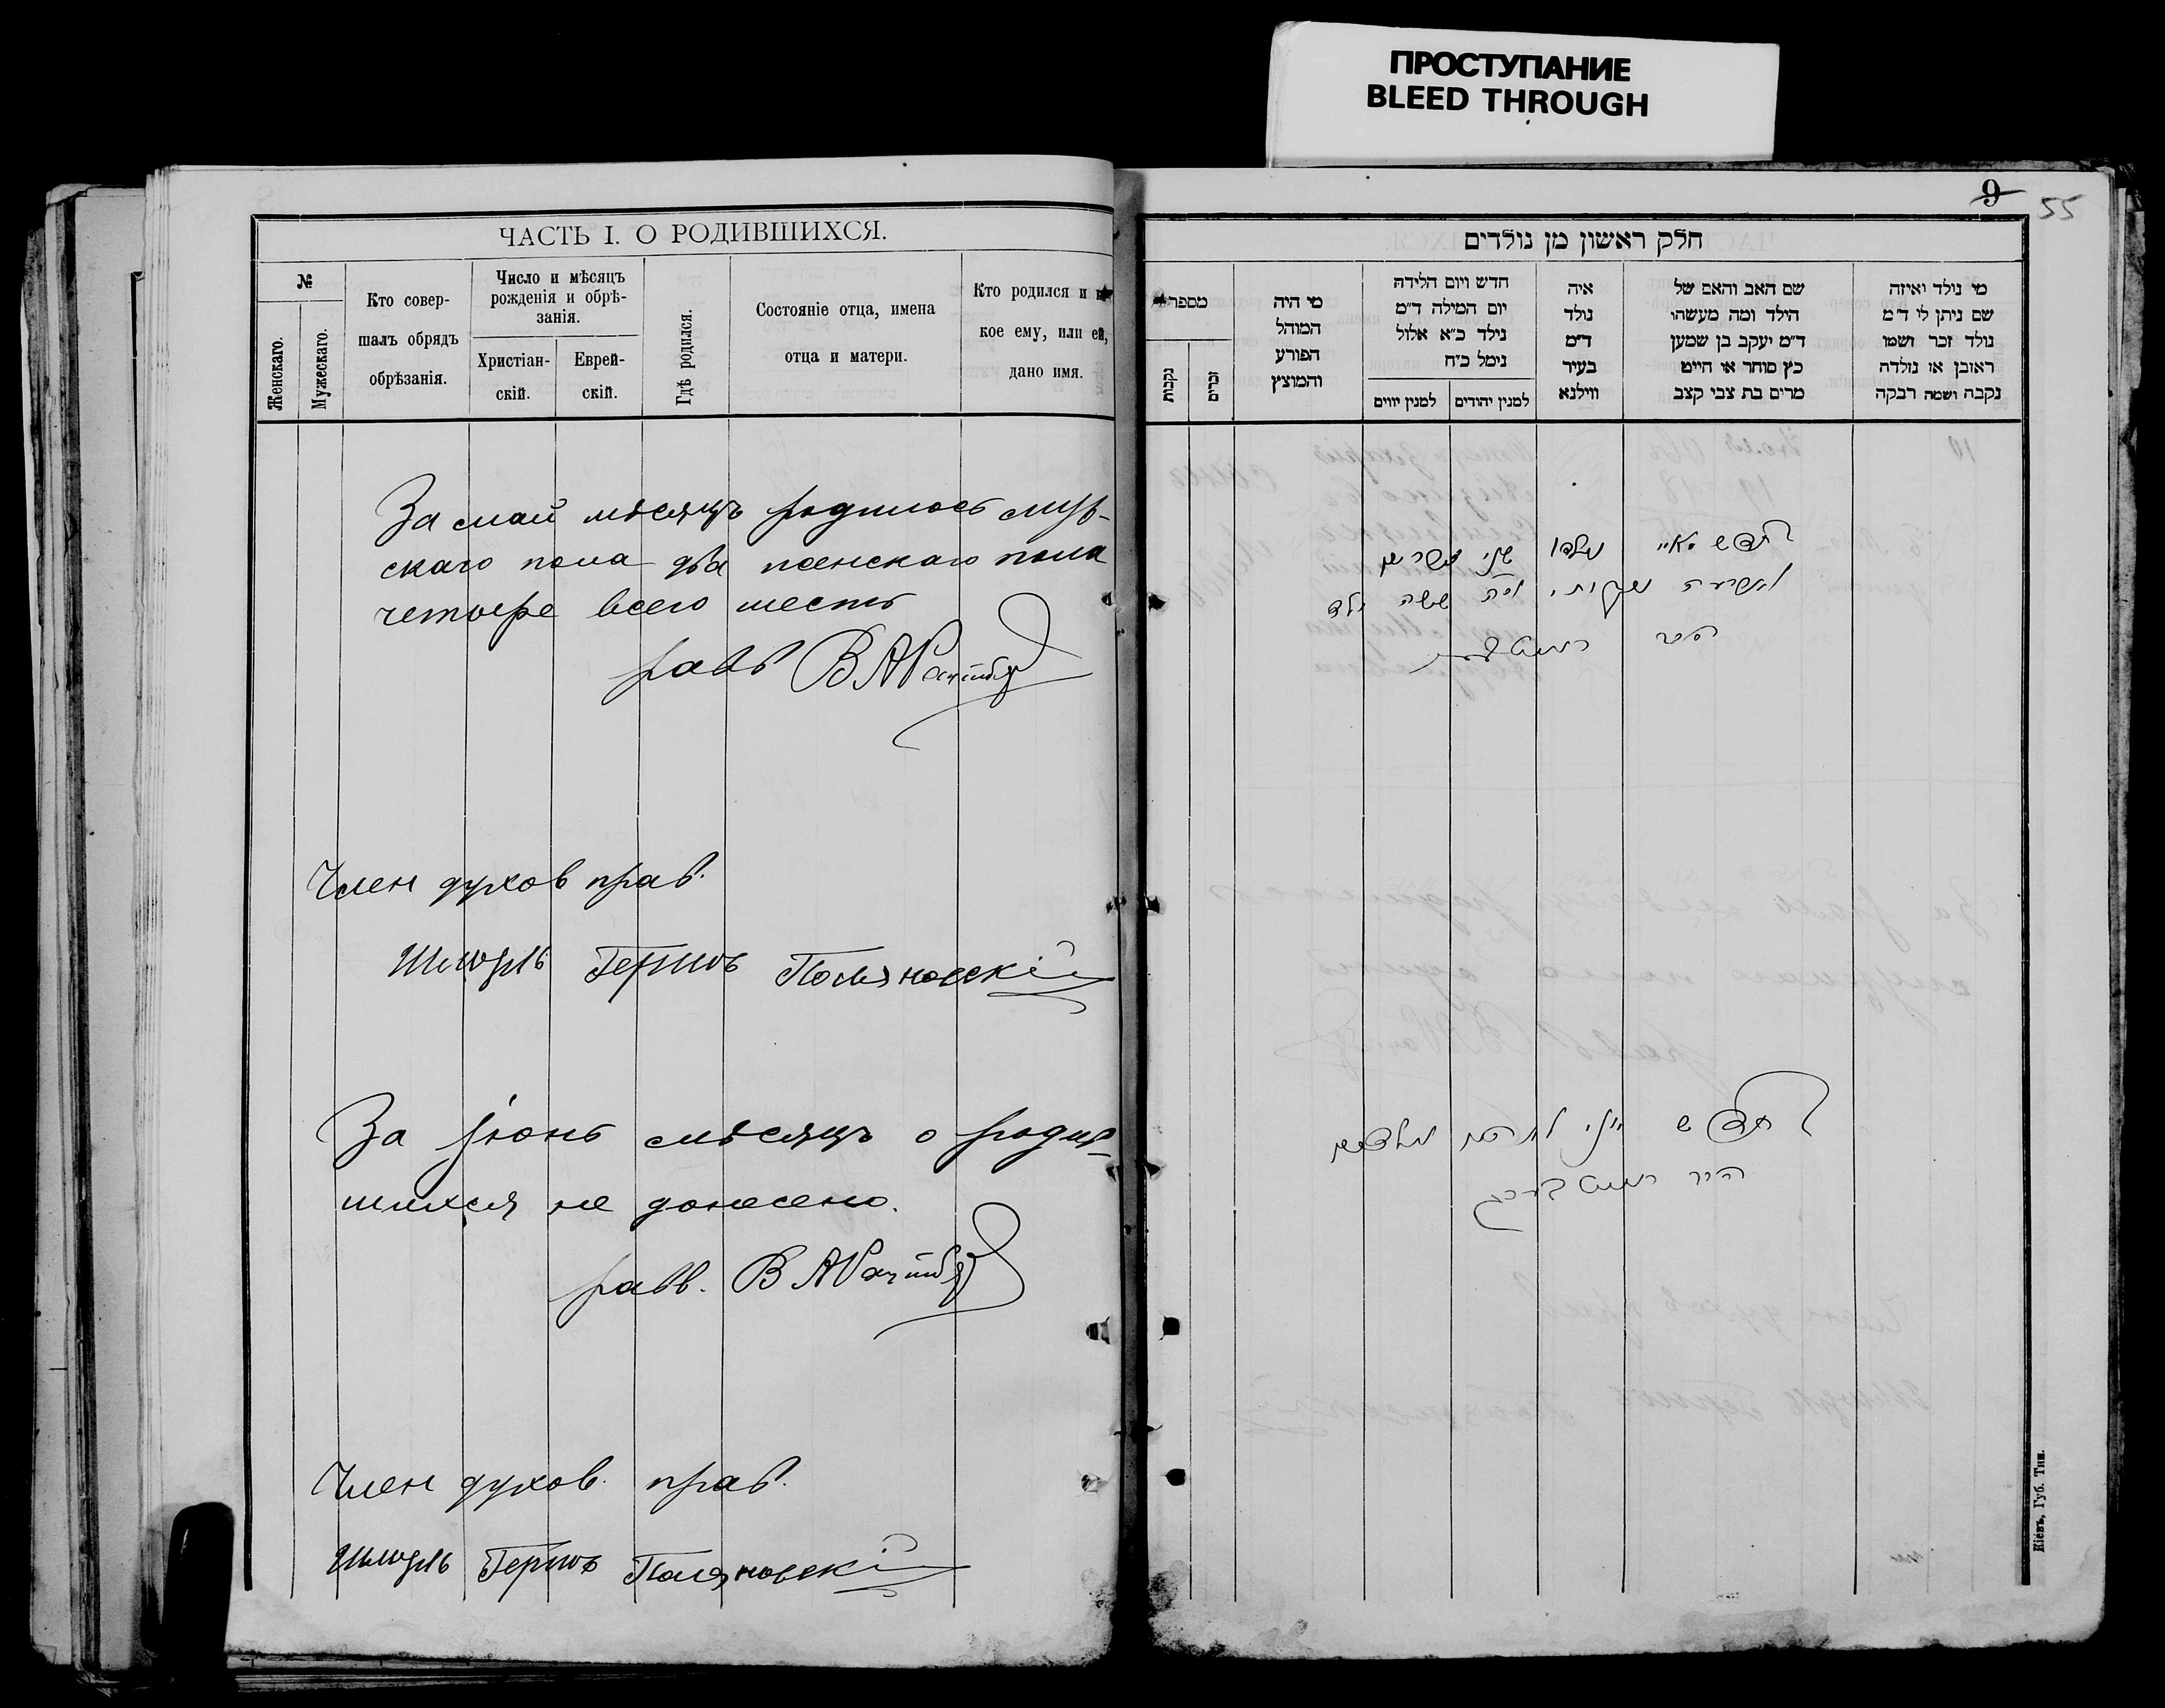 ПРОСТУПАНИЕ
BLEED THROUGH
ЧАСТЬ I. О РОДИВШИХСЯ.
№
Женскаго.
Мужескаго.
Кто совер-
шалъ обрядъ
обрѣзанія.
Число и мѣсяцъ
рожденія и обрѣ-
занія.
Христіан-
скій.
Еврей-
скій.
Гдѣ родился.
Состояніе отца, имена
отца и матери.
Кто родился и
кое ему, или ей,
дано имя.
За май мѣсяцъ родилось муж-
скаго пола два женскаго пола
четыре всего шесть
равв
Член духов прав.
Шмуль Гершъ Поляновскій
За іюнь мѣсяцъ о родив-
шихся не донесено.
равв.
Член духов. прав.
Шмуль Гершъ Поляновскій
9
55
חלק ראשון מן נולדים
מי נולד ואיזה
שם ניתן לי ד״מ
נולד זכר ושמו
ראובן או נולדה
נקבה ושמה רבקה
שם האב והאם של
הילד ומה מעשהו
ד״מ יעקב בן שמען
כץ סוחר או חייט
מרים בת צבי קצב
איה
נולד
ד״מ
בעיר
ווילנא
חדש ויום הלידה
יום המילה ד״מ
נילד כ״א אלול
נימל כ״ח
למנין יהודים
למנין יוונים
מי היה
המוהל
הפורע
והמוצץ
מספר
זכרים
נקבות
Кіевъ, Губ. Тип.